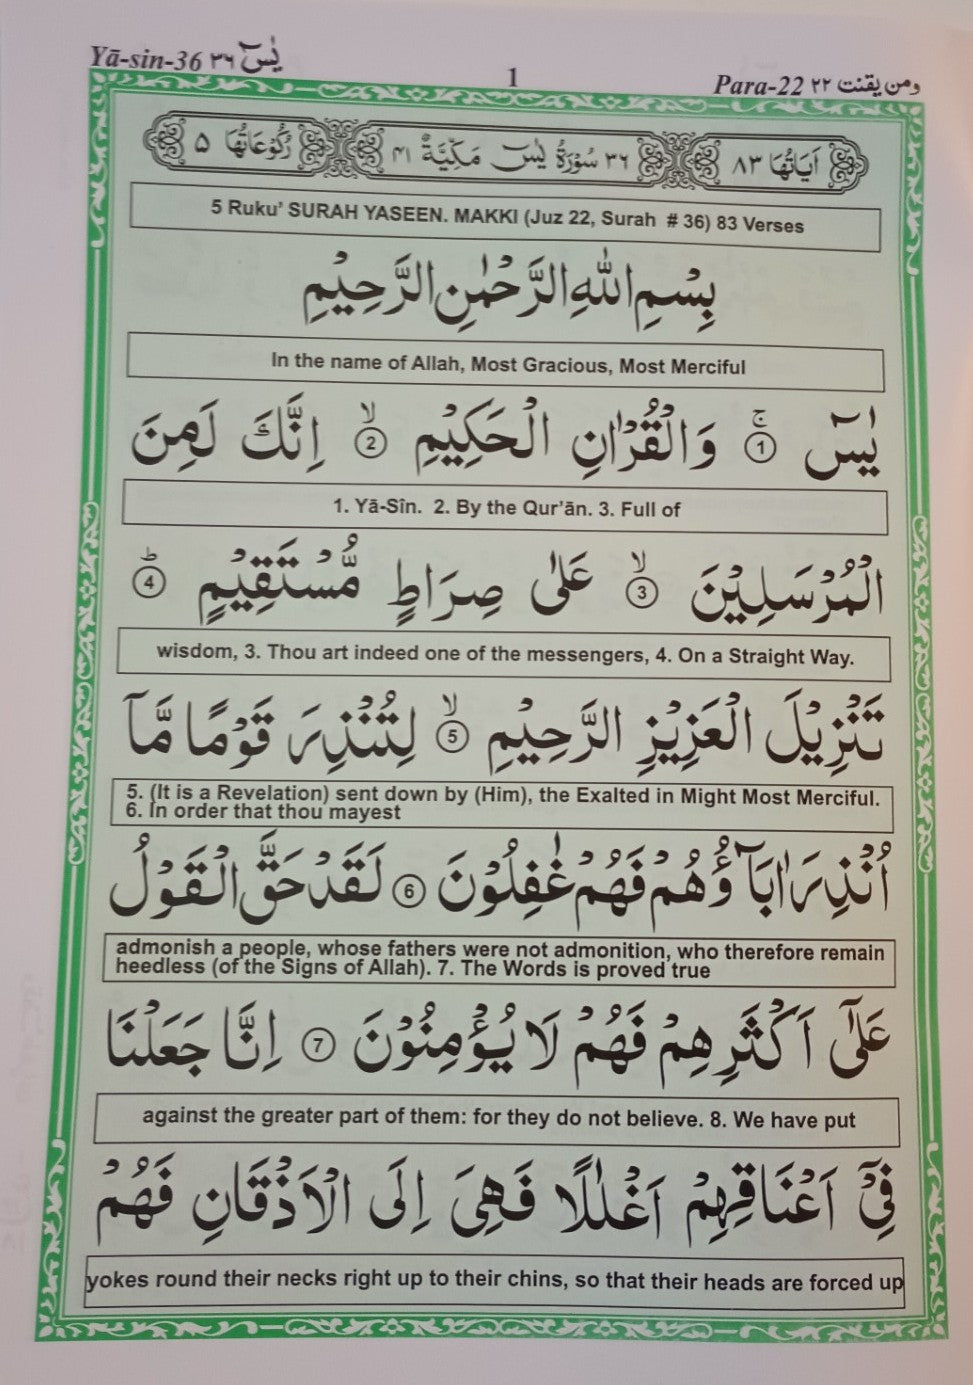 Yā-sin-36 ٣٦ يٰسٓ
1
Para-22 ٢٢ ومن يقنت
اٰيَاتُهَا ٨٣
٣٦ سُوْرَةُ يٰسٓ مَكِّيَّةٌ ٤١
رُكُوْعَاتُهَا ٥
5 Ruku' SURAH YASEEN. MAKKI (Juz 22, Surah # 36) 83 Verses
بِسْمِ اللّٰهِ الرَّحْمٰنِ الرَّحِيْمِ
In the name of Allah, Most Gracious, Most Merciful
يٰسٓ ۚ ① وَالْقُرْاٰنِ الْحَكِيْمِ ۙ ② اِنَّكَ لَمِنَ
1. Yā-Sîn. 2. By the Qur'ān. 3. Full of
الْمُرْسَلِيْنَ ۙ ③ عَلٰى صِرَاطٍ مُّسْتَقِيْمٍ ؕ ④
wisdom, 3. Thou art indeed one of the messengers, 4. On a Straight Way.
تَنْزِيْلَ الْعَزِيْزِ الرَّحِيْمِ ۙ ⑤ لِتُنْذِرَ قَوْمًا مَّآ
5. (It is a Revelation) sent down by (Him), the Exalted in Might Most Merciful.
6. In order that thou mayest
اُنْذِرَ اٰبَآؤُهُمْ فَهُمْ غٰفِلُوْنَ ⑥ لَقَدْ حَقَّ الْقَوْلُ
admonish a people, whose fathers were not admonition, who therefore remain
heedless (of the Signs of Allah). 7. The Words is proved true
عَلٰٓى اَكْثَرِهِمْ فَهُمْ لَا يُؤْمِنُوْنَ ⑦ اِنَّا جَعَلْنَا
against the greater part of them: for they do not believe. 8. We have put
فِيْٓ اَعْنَاقِهِمْ اَغْلٰلًا فَهِيَ اِلَى الْاَذْقَانِ فَهُمْ
yokes round their necks right up to their chins, so that their heads are forced up